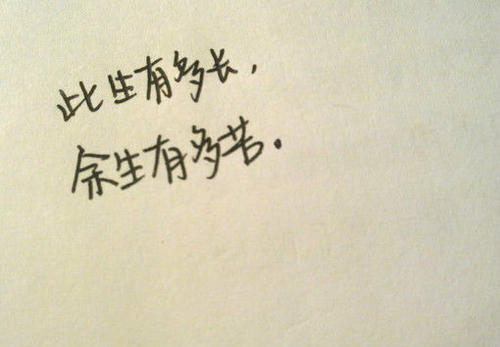 此生有多长,
余生有多苦.